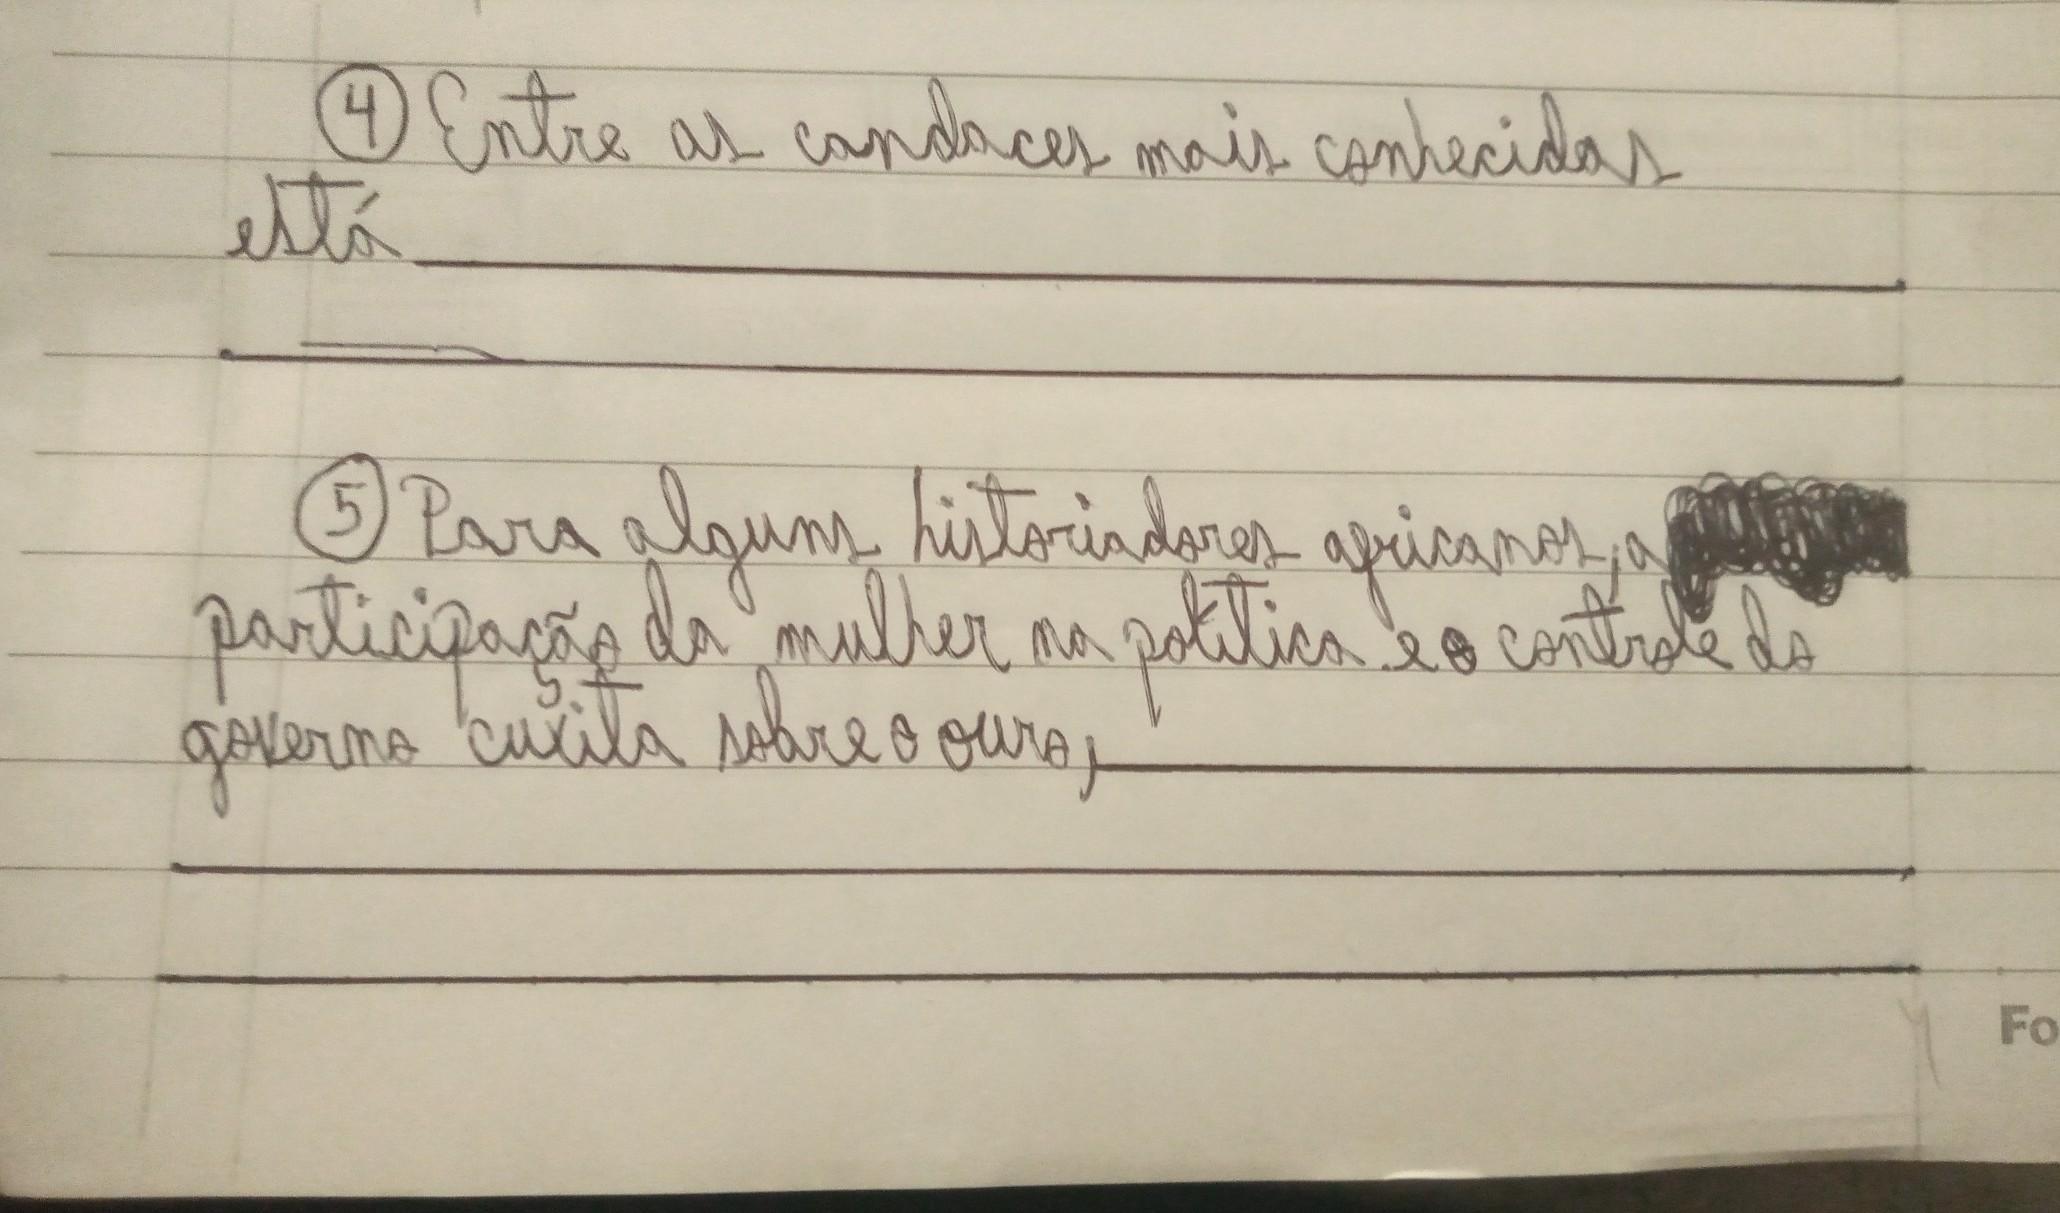 ④ Entre as candaces mais conhecidas
está
⑤ Para alguns historiadores africanos, a
participação da mulher na política e o controle do
governo cuxita sobre o ouro,
Fo